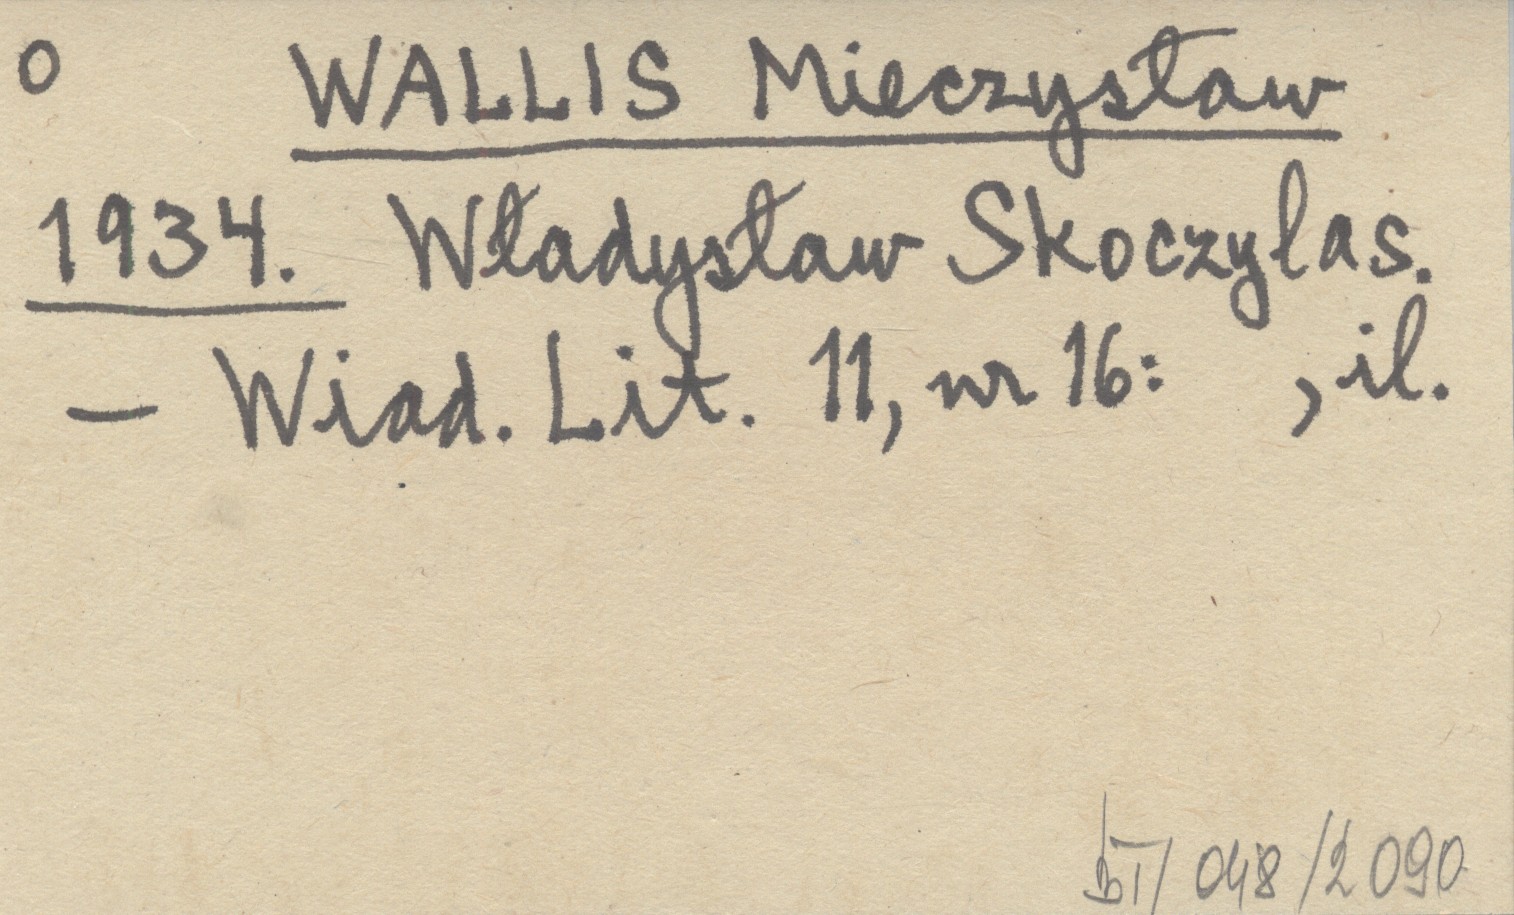 o WALLIS Mieczysław
1934. Władysław Skoczylas.
— Wiad. Lit. 11, nr 16: , il.
/048/2090